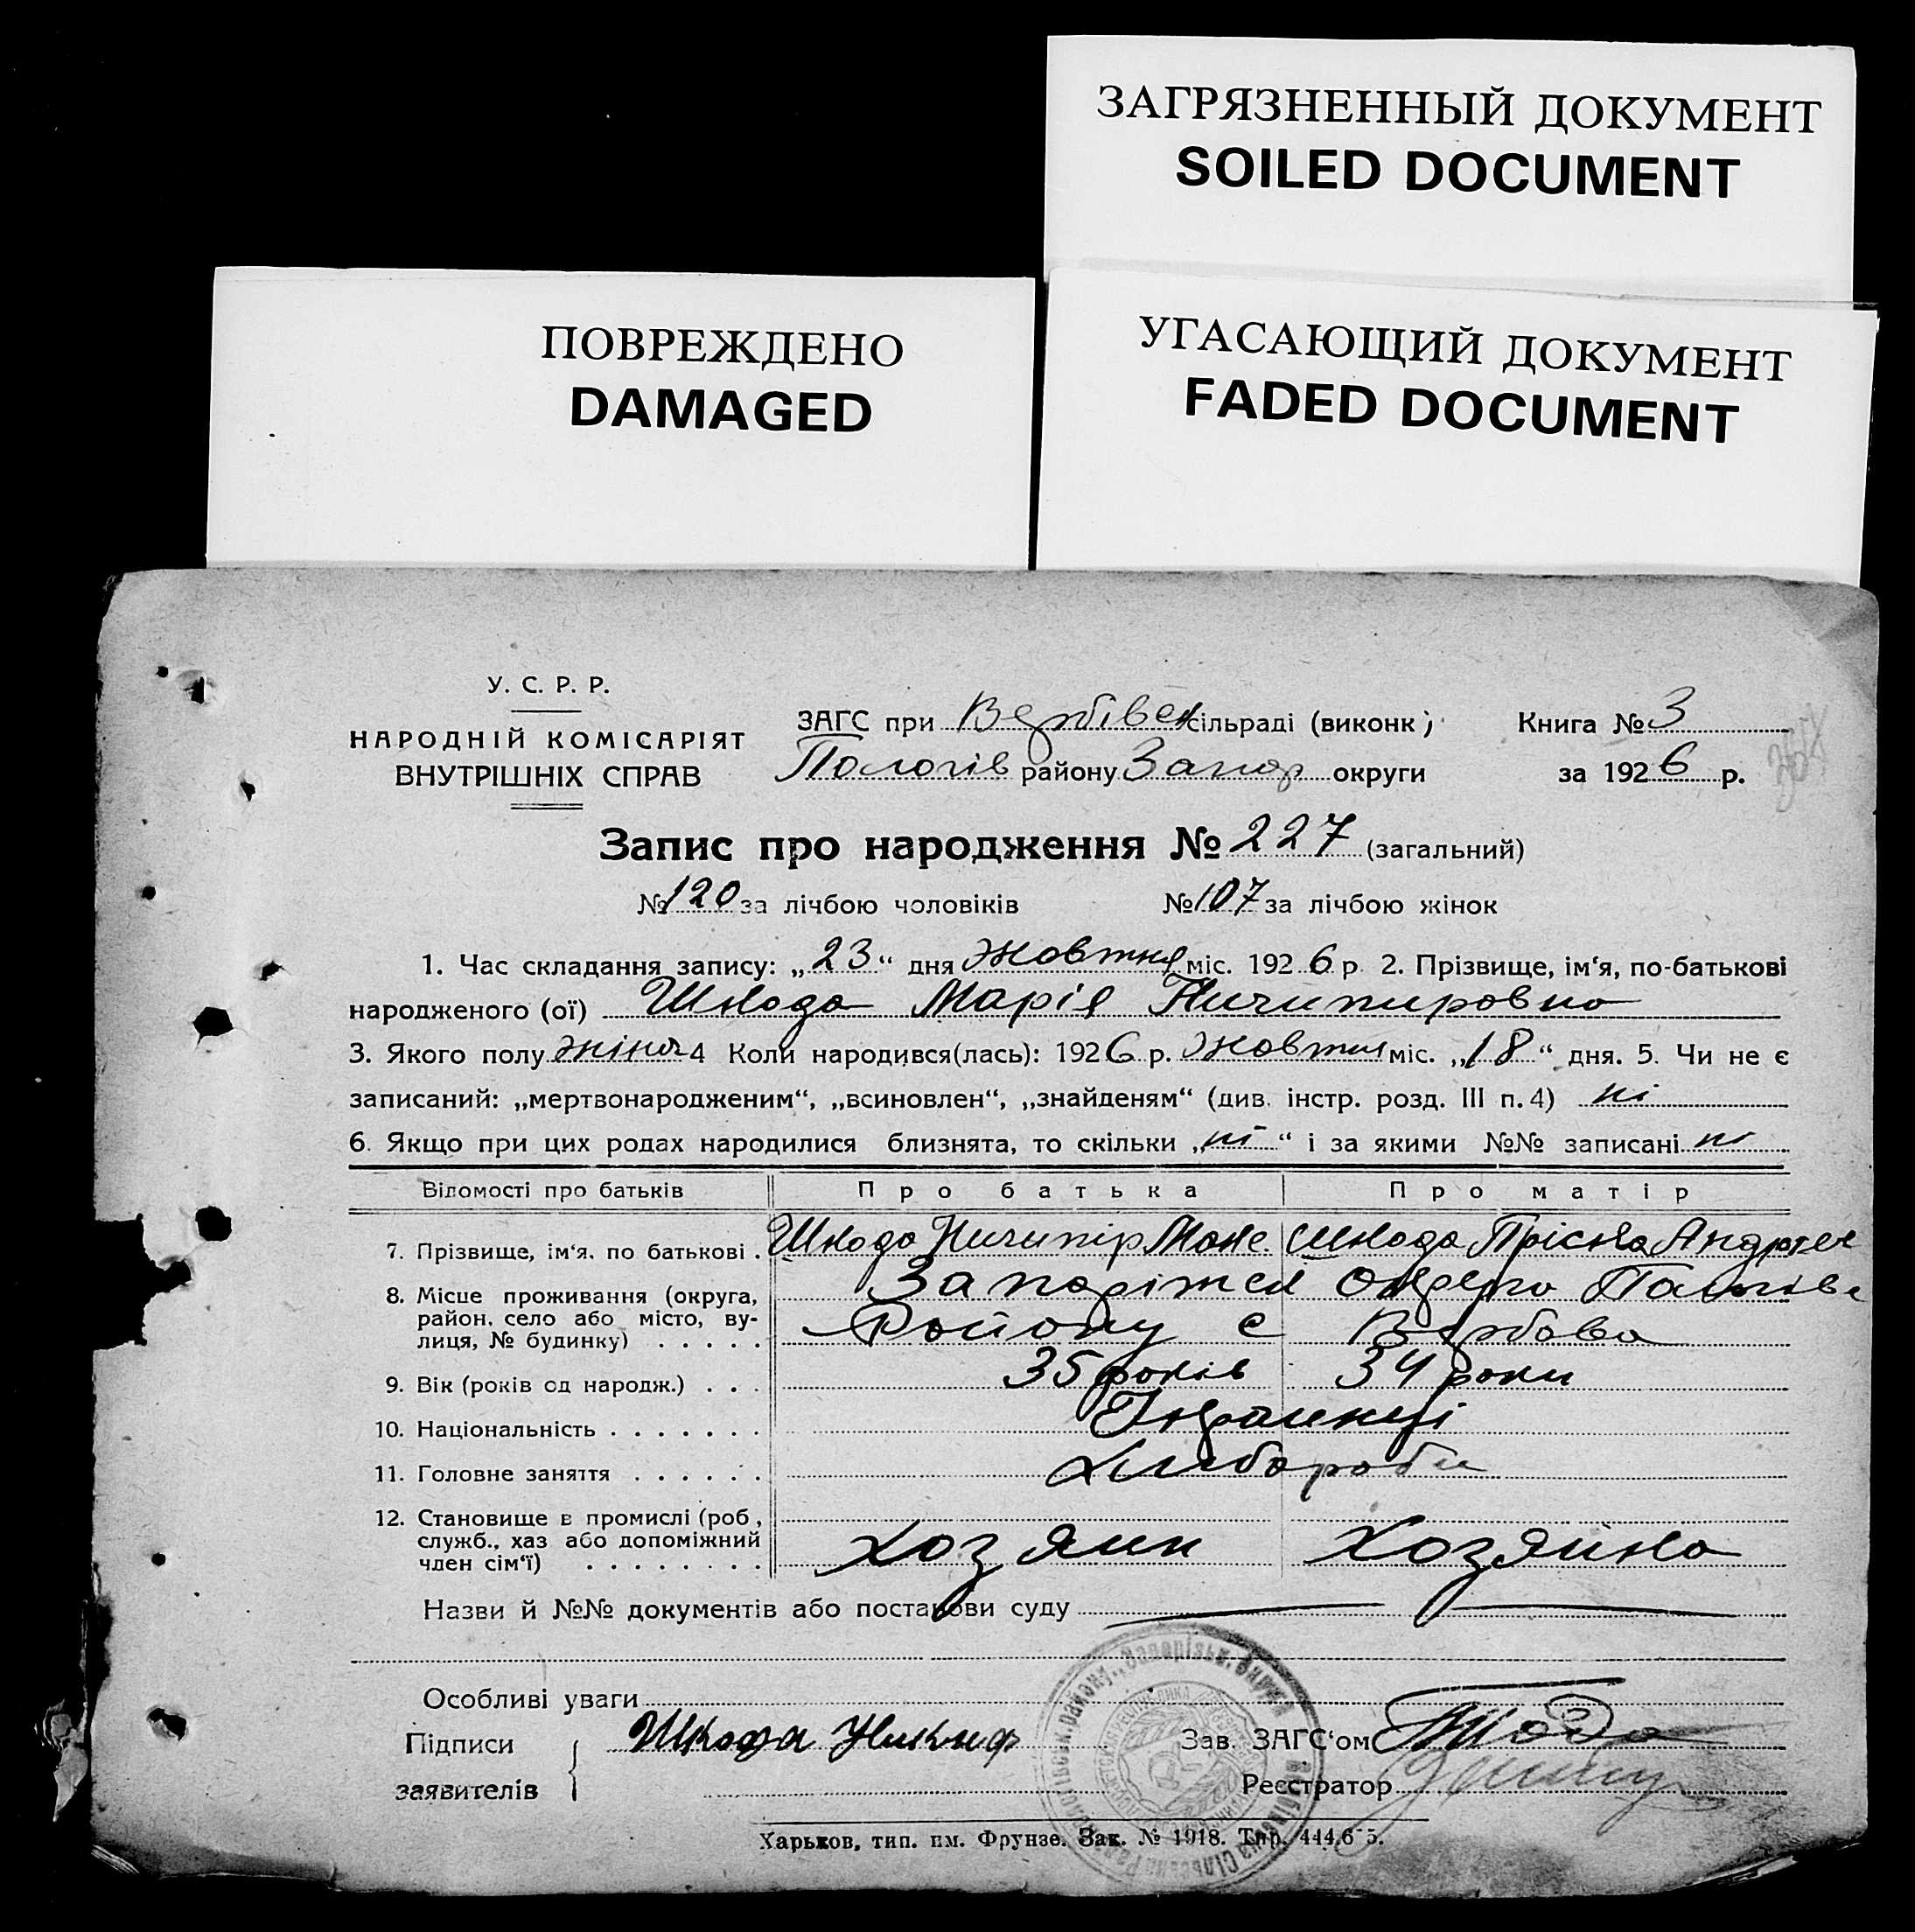 ЗАГРЯЗНЕННЫЙ ДОКУМЕНТ
SOILED DOCUMENT
ПОВРЕЖДЕНО
DAMAGED
УГАСАЮЩИЙ ДОКУМЕНТ
FADED DOCUMENT
У. С. Р. Р.
НАРОДНІЙ КОМІСАРІЯТ
ВНУТРІШНІХ СПРАВ
ЗАГС при Вербівськ сільраді (виконк) Книга № 3
Пологів району Запор округи за 1926 р.
Запис про народження № 227 (загальний)
№ 120 за лічбою чоловіків № 107 за лічбою жінок
1. Час складання запису: „23“ дня Жовтня міс. 1926 р. 2. Прізвище, ім‘я, по-батькові
народженого (ої) Шкода Марія Ничипировна
3. Якого полу жіноч 4 Коли народився(лась): 1926 р. Жовтня міс. „18“ дня. 5. Чи не є
записаний: „мертвонародженим“, „всиновлен“, „знайденям“ (див. інстр. розд. III п. 4) ні
6. Якщо при цих родах народилися близнята, то скільки „ні“ і за якими №№ записані ні
Відомості про батьків Про батька Про матір
7. Прізвище, ім‘я, по батькові . Шкода Ничипір Шкода Пріська Андрієв
8. Місце проживання (округа,
район, село або місто, ву-
лиця, № будинку) . . . . .
Запоріжся
Району с Вербова
9. Вік (років од народж.) . . . 35 років 34 роки
10. Національність . . . . . . . Українці
11. Головне заняття . . . . . . Хлібороби
12. Становище в промислі (роб,
служб., хаз або допоміжний
член сім‘ї) . . . . . . . .
Хозяин Хозяйка
Назви й №№ документів або постанови суду
Особливі уваги
Підписи Шкода Никиф Зав. ЗАГС‘ом
заявителів Реєстратор
Харьков, тип. им. Фрунзе. Зак. № 1918. Тир. 444.6